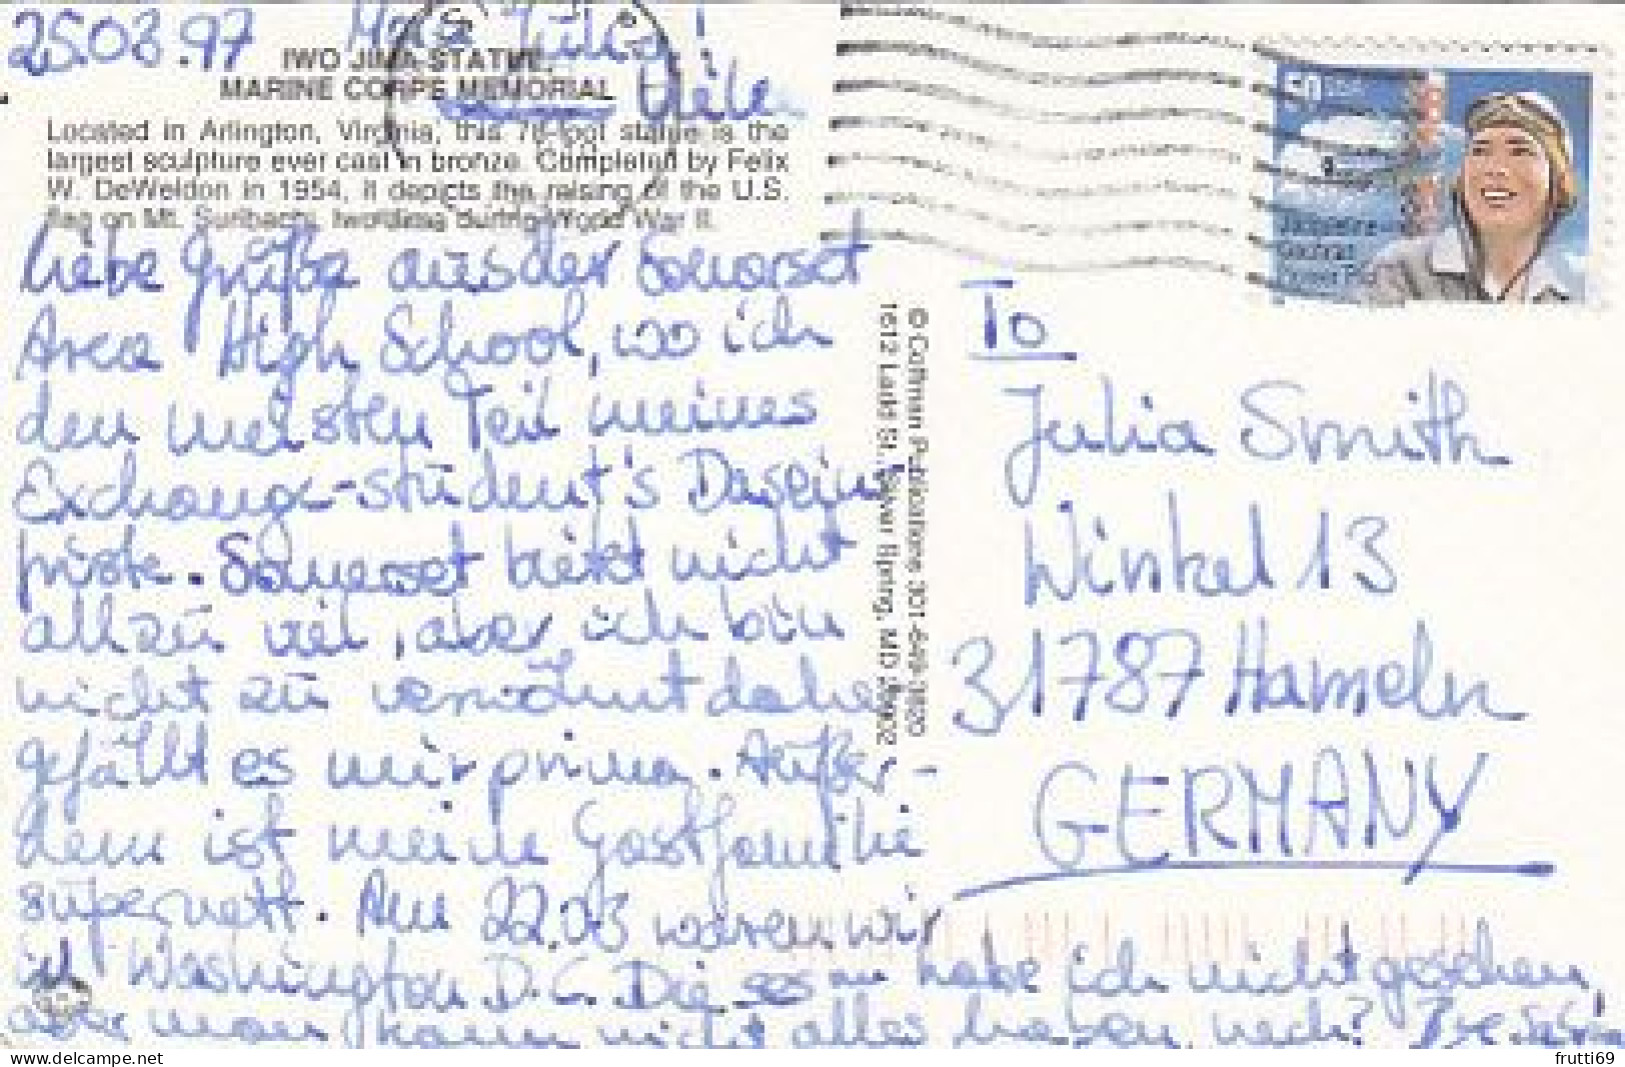 25.03.97 Julia!
IWO JIMA STATUE,
MARINE CORPS MEMORIAL
Located in Arlington, Virginia, this 78-foot statue is the
largest sculpture ever cast in bronze. Completed by Felix
W. DeWeldon in 1954, it depicts the raising of the U.S.
flag on Mt. Suribachi, Iwo Jima during World War II.
liebe Grüße aus der Somerset
Area High School, wo ich
den meisten Teil meines
Exchange-student's Daseins
friste. Somerset bietet nicht
allzu viel, aber ich bin
nicht zu verwöhnt daher
gefällt es mir prima. Außer-
dem ist meine Gastfamilie
supernett. Am 22.03 waren wir
in Washington D.C. Dieses habe ich nicht gesehen,
aber man kann nicht alles haben, nech?
© Coffman Publications 301-649-3820
1612 Ladd St., Silver Spring, MD 20902
50 USA
Jacqueline
Cochran
Pioneer Pilot
To
Julia Smith
Winkel 13
31787 Hameln
GERMANY
frutti69